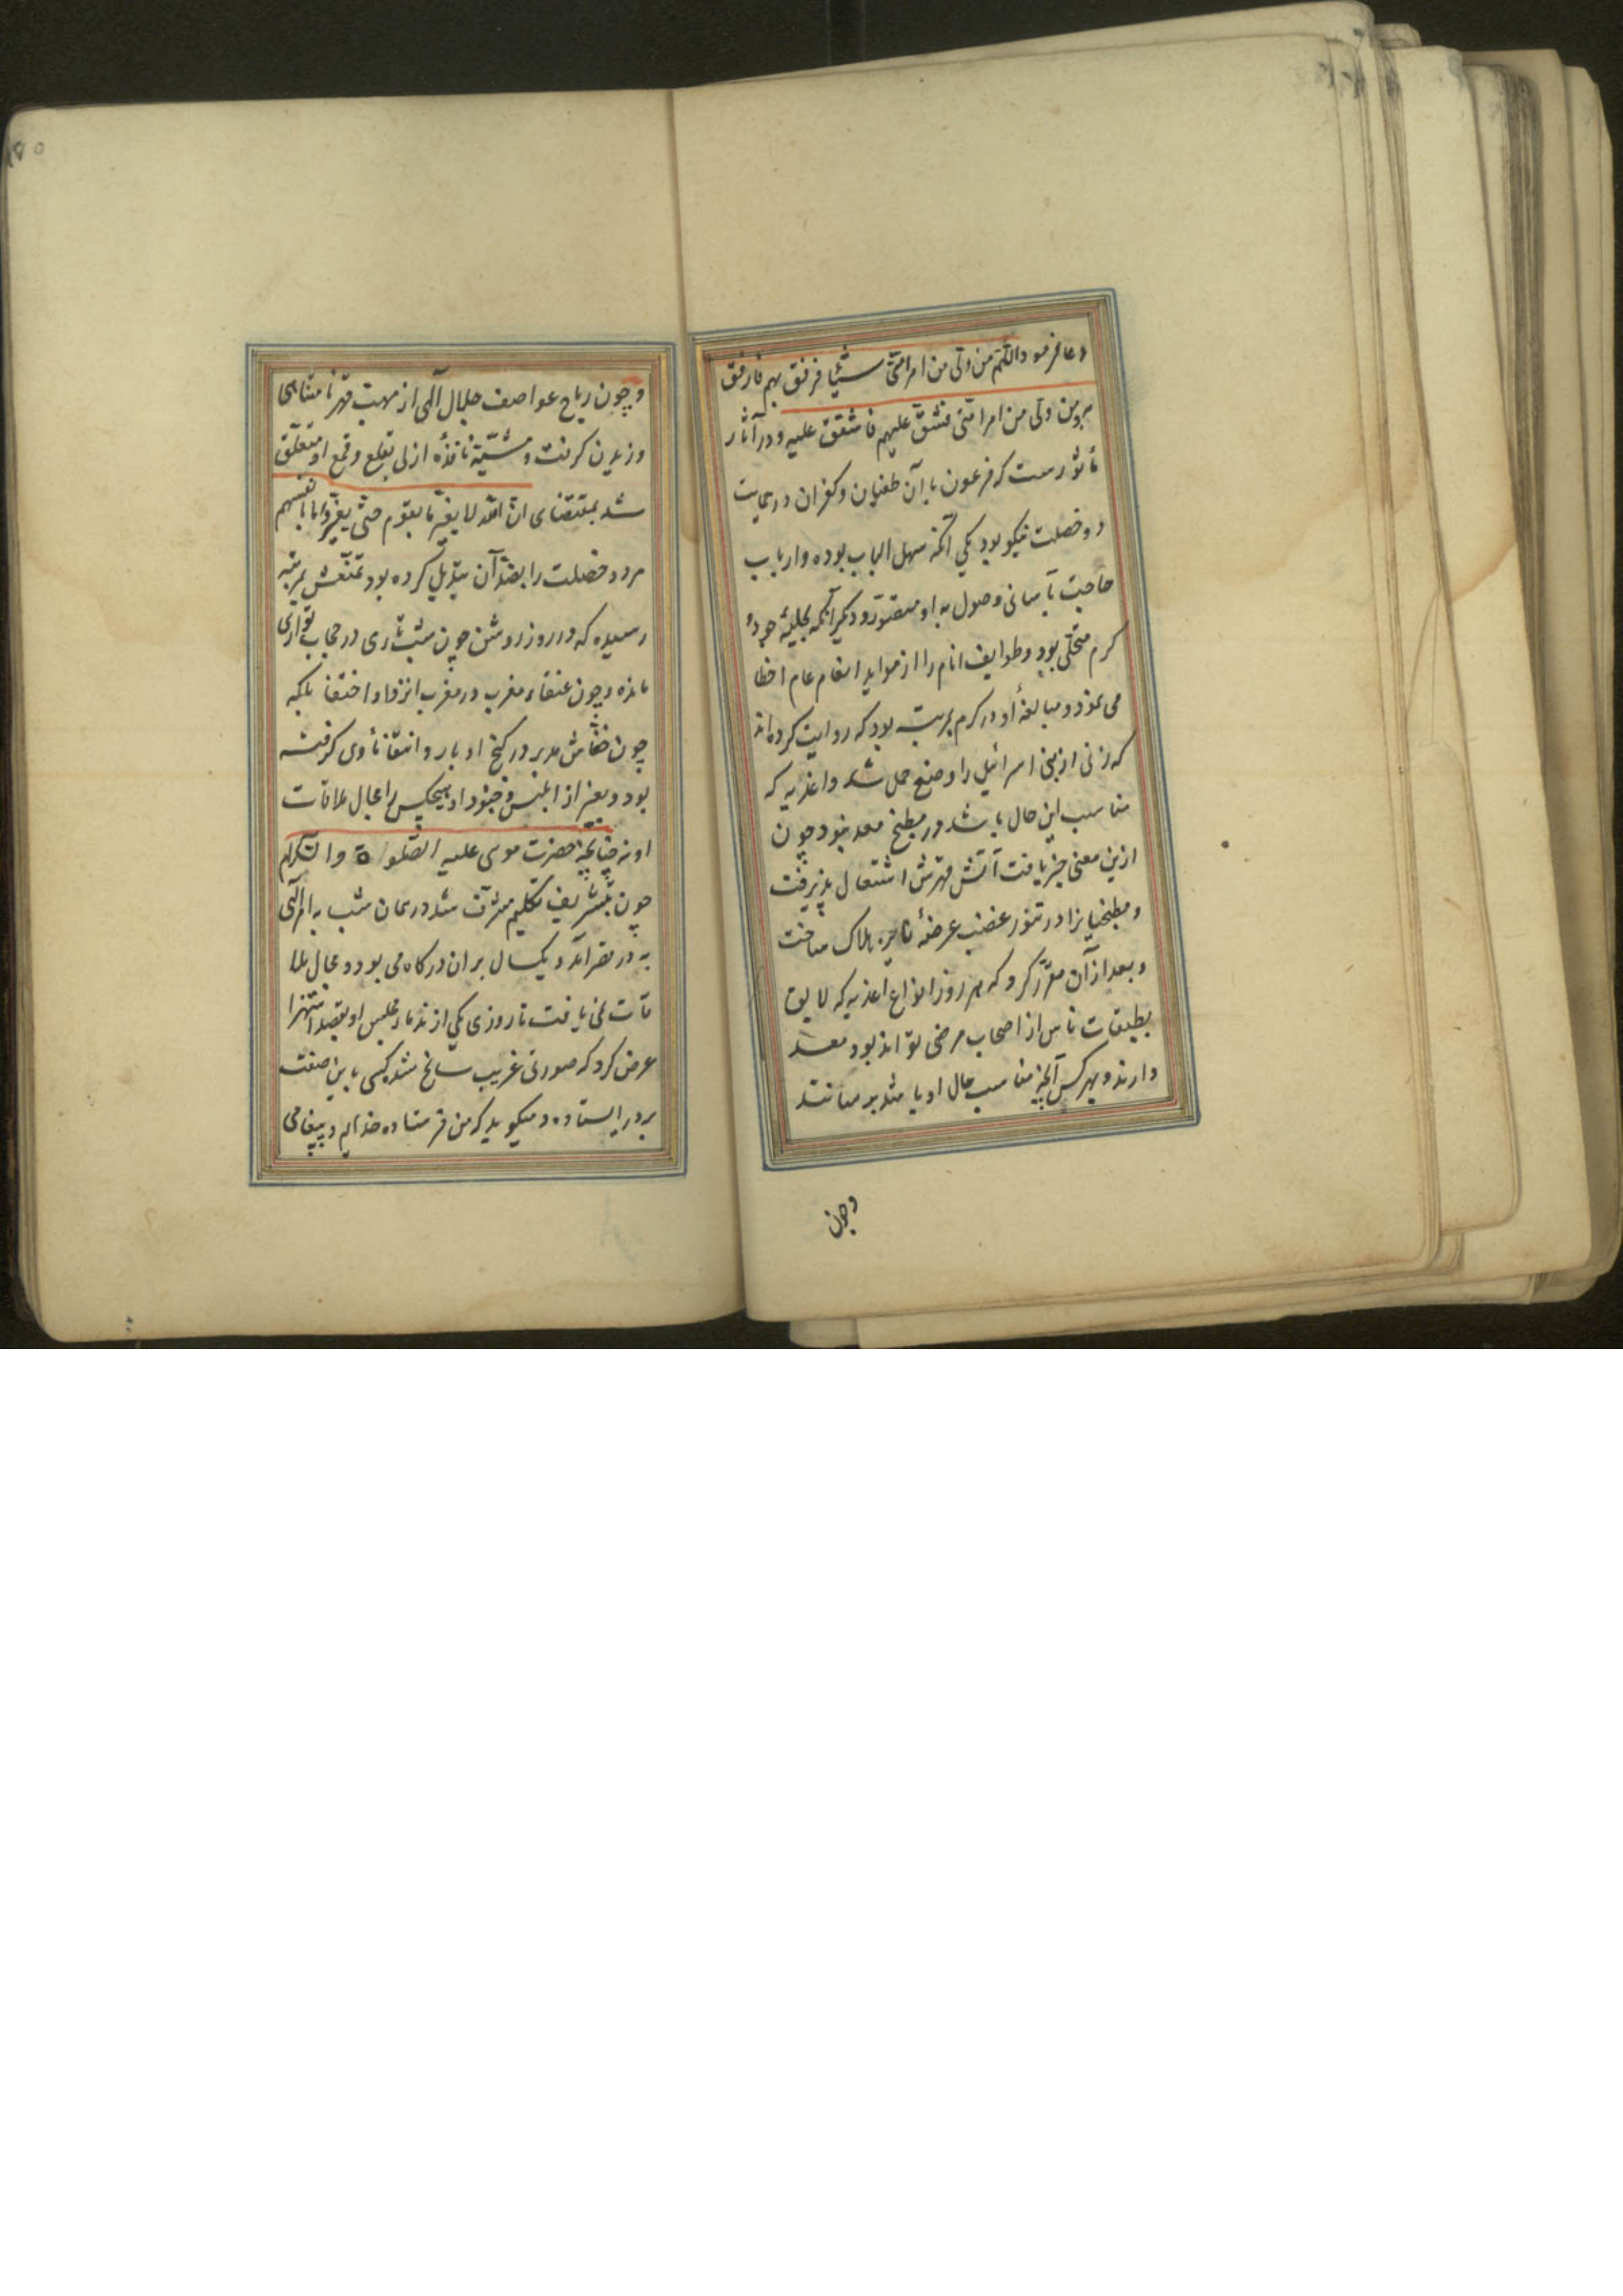 دعا فرمود اللهم من ولی من امر امتی شیئا فرفق بهم فارفق
به ومن ولی من امر امتی فشق علیهم فاشقق علیه و در آثار
مأثورست که فرعون با آن طغیان و کفران در بدایت
دو خصلت نیکو بود یکی آنکه سهل الباب بوده و ارباب
حاجت بآسانی وصول به او میسّر و دیگر آنکه بحلیهٔ جود و
کرم متحلی بود و طوایف انام را از موائد انعام عام احظا
می نمود و مبالغهٔ او در کرم بمرتبه بود که روایت کرده‌اند
که زنی از بنی اسرائیل را وضع حمل شد و اغذیه که
مناسب این حال باشد در مطبخ معد نبود چون
ازین معنی خبر یافت آتش قهرش اشتعال پذیرفت
و مطبخیانرا در تنور غضب عرضهٔ نایرهٔ هلاک ساخت
و بعد از آن مقرّر کرد که هر روز انواع اغذیه که لایق
بطبقات ناس از اصحاب مرضی تواند بود معد
دارند و بهر کس آنچه مناسب حال او باشد برسانند
وچون
۱۵۰
و چون ریاح عواصف جلال آلهی از مهب قهر نامتناهی
وزیدن کرفت و مشیّة نافذهٔ ازلی بقلع و قمع او متعلّق
شد بمقتضای ان الله لا یغیر ما بقوم حتی یغیروا ما بانفسهم
هر دو خصلت را بضدّ آن تبدیل کرده بود تمنّعش بمرتبه
رسیده که در روز روشن چون شب تاری در حجاب تواری
مانده و چون عنقاء مغرب در مغرب انزوا و اختفا بلکه
چون خفاش مدبر در کنج ادبار و انتفا مأوی کرفته
بود و بغیر از ابلیس و جنود او هیچکس را مجال ملاقات
او نه چنانچه حضرت موسی علیه الصّلوة والسّلام
چون بتشریف تکلیم مشرّف شد در همان شب به امر آلهی
به در قصر آمد و یکسال بر ان درکاه می بود و مجال ملا
قات نمی یافت تا روزی یکی از ندماء مجلس او بقصد استهزا
عرض کرد که صورتی غریب سانح شد کسی باین صفت
بر در ایستاده و میکوید که من فرستاده خدایم و پیغامی